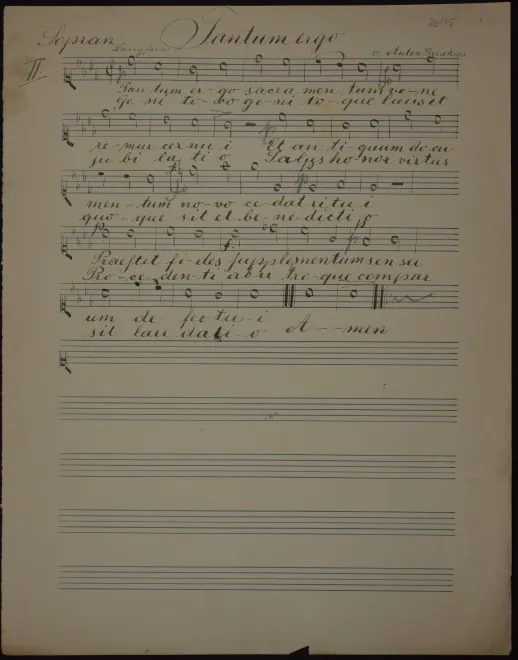 20/45
Sopran Tantum ergo
Langsam v. Anton Bruckner
II.
Tan-tum er-go sacra men tum ve-ne
Ge ni to-vo ge-ni to-que laus et
re-mur cer nu i Et an ti-quum do cu
ju bi la ti o Salus ho nor virtus
men-tum no-vo ce dat ri tu i
quo-que sit et be-ne dicti o
p f p
Praestet fi-des supplementum sen su
Pro-ce den-ti ab u tro-que compar
um de fec-tu-i
sit lau dati-o A--men